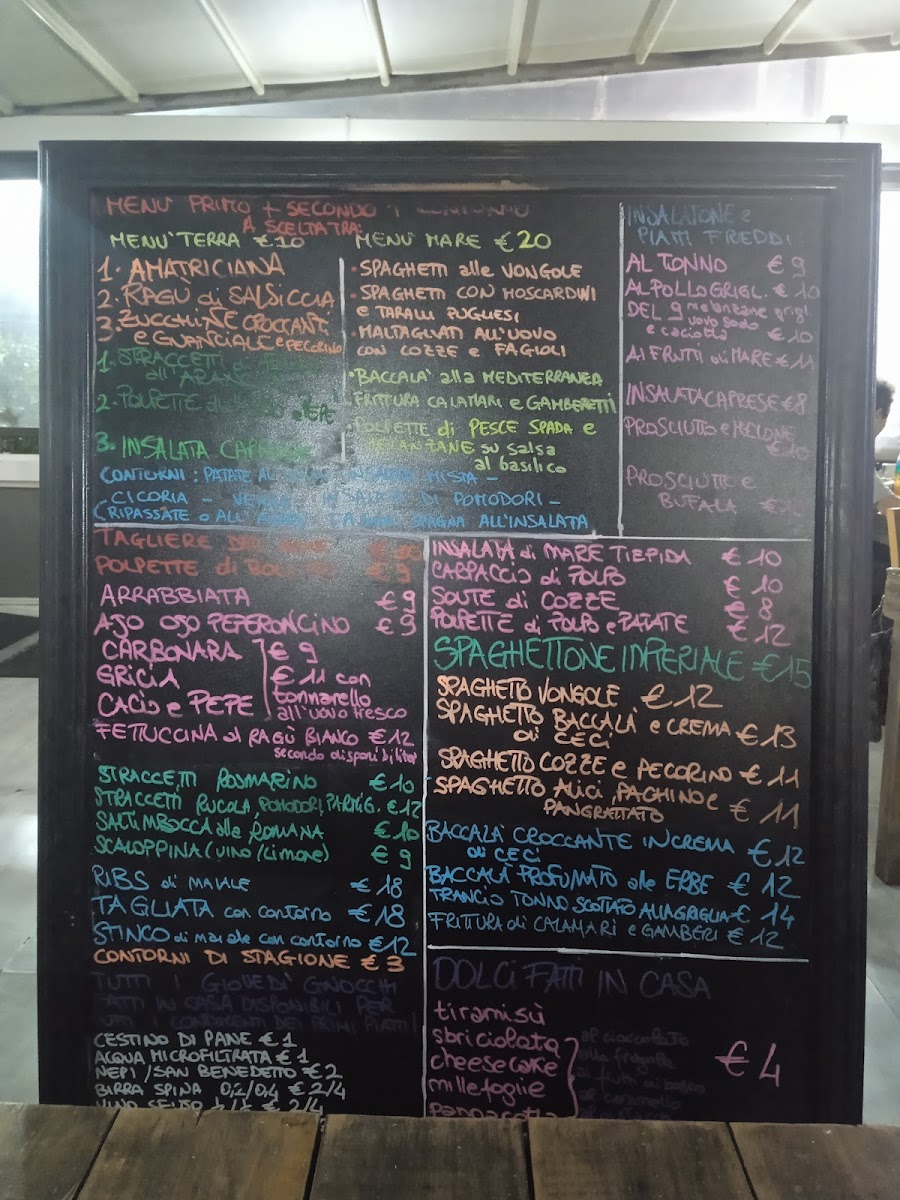 MENÙ PRIMO + SECONDO
A SCELTA TRA:
MENU' TERRA € 10
1. AMATRICIANA
2. RAGU di SALSICCIA
3. ZUCCHINE CROCCANTI
e GUANCIALE e PECORINO
1. STRACCETTI
all'ARANC
2. POLPETTE
PEPE
3. INSALATA CAPRESE
MENU' MARE € 20
• SPAGHETTI alle VONGOLE
• SPAGHETTI CON MOSCARDINI
e TARALLI PUGLIESI
• MALTAGLIATI ALL'UOVO
CON COZZE e FAGIOLI
• BACCALA' alla MEDITERRANEA
FRITTURA CALAMARI e GAMBERETTI
POLPETTE di PESCE SPADA e
MELANZANE su SALSA
al basilico
CONTORNI: PATATE MISTA -
CICORIA - DI POMODORI -
(RIPASSATE o ALL' SPAGNA ALL'INSALATA
INSALATONE e
PIATTI FREDDI:
AL TONNO € 9
AL POLLO GRIGL. € 10
DEL 9 melanzane grigl.
uovo sodo
e caciotta € 10
AI FRUTTI di MARE € 11
INSALATA CAPRESE € 8
PROSCIUTTO e MELONE
€ 10
PROSCIUTTO e
BUFALA
TAGLIERE
POLPETTE di € 9
ARRABBIATA € 9
AJO OJO PEPERONCINO € 9
CARBONARA € 9
GRICIA
CACIO e PEPE
€ 11 con
tonnarello
all'uovo fresco
FETTUCCINA al RAGÙ BIANCO € 12
secondo disponibilita'
STRACCETTI ROSMARINO € 10
STRACCETTI RUCOLA, POMODORI, PARMIG. € 12
SALTIMBOCCA alla ROMANA € 10
SCALOPPINA (vino/limone) € 9
RIBS di MAIALE € 18
TAGLIATA con contorno € 18
STINCO di maiale con contorno € 12
CONTORNI DI STAGIONE € 3
TUTTI I GIOVEDI' GNOCCHI
FATTI IN CASA DISPONIBILI PER
TUTTI I CONDIMENTI DEI PRIMI PIATTI!
CESTINO DI PANE € 1
ACQUA MICROFILTRATA € 1
NEPI / SAN BENEDETTO € 2
BIRRA SPINA 0,2/0,4 € 2/4
€ 2/4
INSALATA di MARE TIEPIDA € 10
CARPACCIO di POLPO € 10
SOUTE di COZZE € 8
POLPETTE di POLPO e PATATE € 12
SPAGHETTONE IMPERIALE € 15
SPAGHETTO VONGOLE € 12
SPAGHETTO BACCALÀ e CREMA € 13
di CECI
SPAGHETTO COZZE e PECORINO € 11
SPAGHETTO ALICI, PACHINO e € 11
PANGRATTATO
BACCALÀ CROCCANTE IN CREMA € 12
di CECI
BACCALÀ PROFUMATO alle ERBE € 12
TRANCIO TONNO SCOTTATO ALLA GRIGLIA € 14
FRITTURA di CALAMARI e GAMBERI € 12
DOLCI FATTI IN CASA
tiramisù
sbriciolata al cioccolato
cheesecake alla fragola
millefoglie ai frutti di bosco
pannacotta al caramello
€ 4